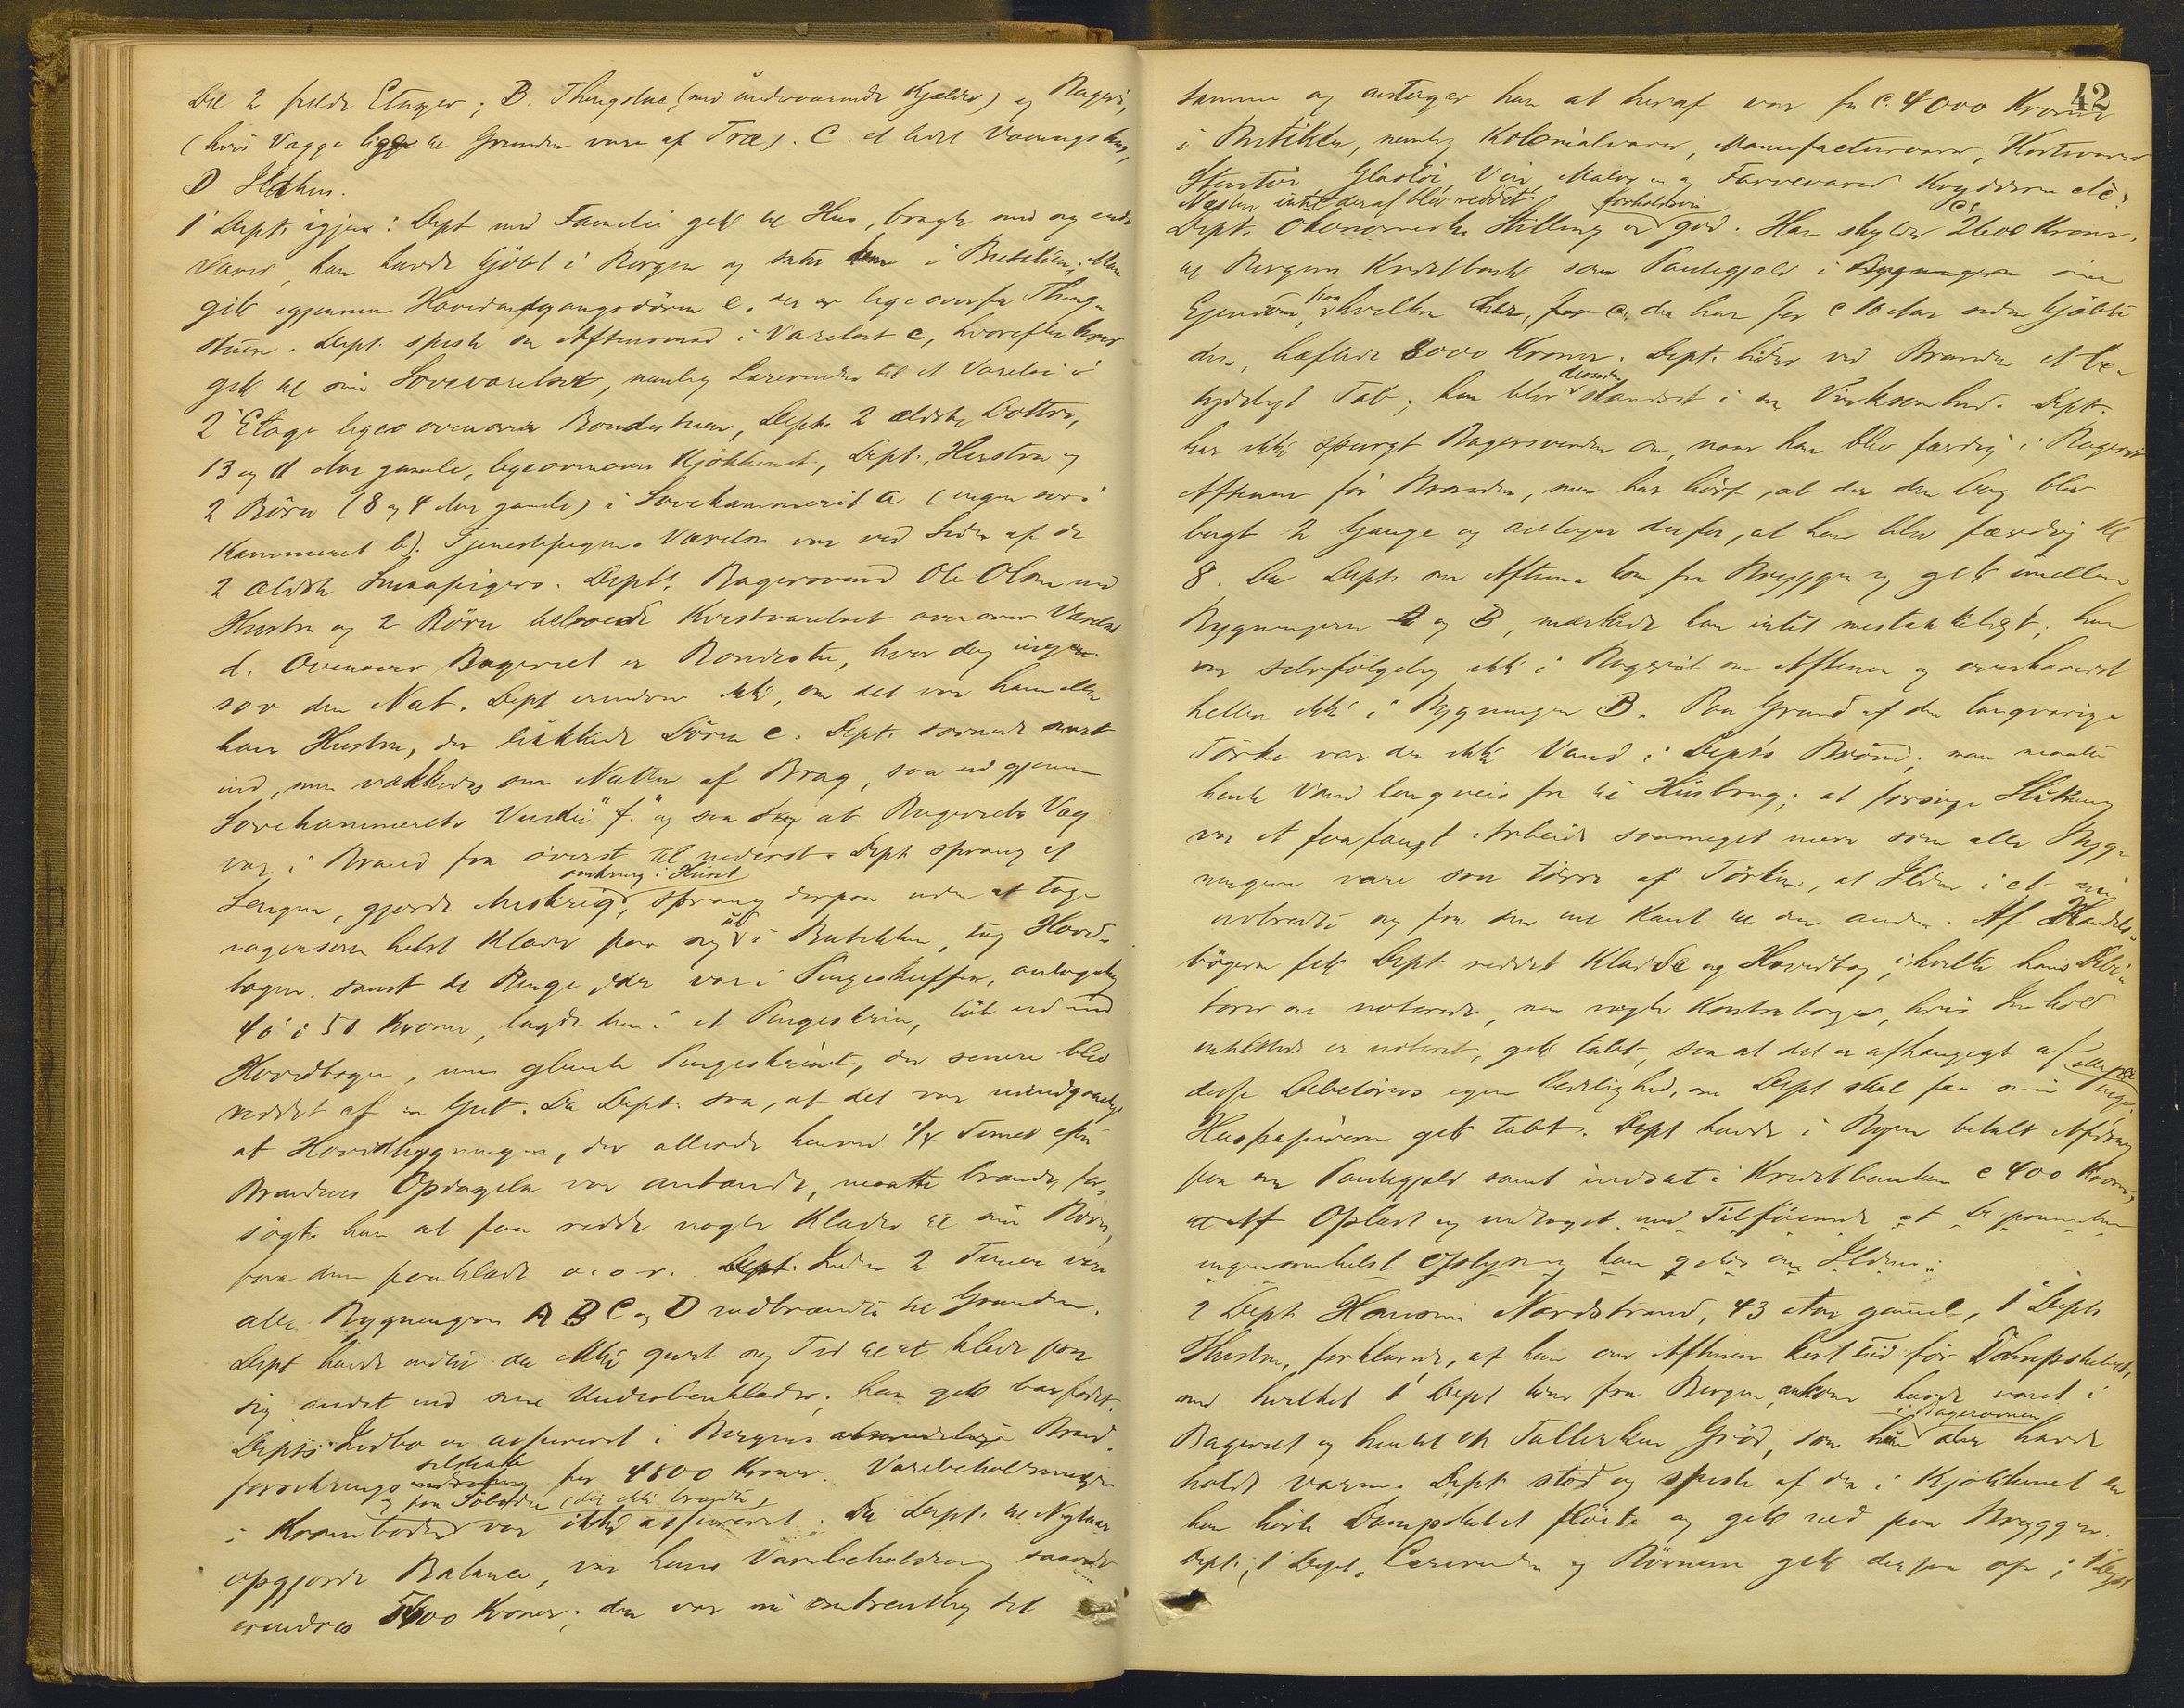 Del 2 fulde Etager; B. Thingstue (med underværende Kjælder) og Bageri,
(hvis Vægge ligge til Grunden vare af Træ). C. et lidet Vaaningshus,
D Ildhus.
1 Dept. igjen: Dept med Familie gik til Hus, bragte med sig endel
Varer, han havde kjöbt i Bergen og satte dem i Butikken; Man
gik igjennem Hovedindgangsdören e, der er lige overfor Thing-
stuen. Dept. spiste sin Aftensmad i Værelset c, hvorefter hver
gik til sit Soveværelse, nemlig Læreren til et Værelse i
2 Etage lige ovenover Bondestuen, Depts 2 ældste Döttre,
13 og 11 Aar gamle, lige ovenover Kjökkenet, Dept., Hustru og
2 Börn (8 og 4 Aar gamle) i Sovekammeret a (ingen sov i
Kammeret b). Tjenestepigens Værelse var ved Siden af de
2 ældste Smaapigers. Depts Bagersvend Ole Olsen med
Hustru og 2 Börn beboede Kvistværelset over over Værelset
d. Ovenover Bageriet er Bondestue, hvor dog ingen
sov den Nat. Dept erindrer ikke, om det var ham eller
hans Hustru, der lukkede Dören e. Dept. sovnede snart
ind, men vækkedes om Natten af Brag, saa ud gjennem
Sovekammerets Vindu "f." og saa at Bageriets Væg
var i Brand fra överst til nederst. Dept sprang af
omkring i Huset
Sengen, gjorde Anskrig, sprang derpaa uden at tage
ud
nogensom helst Klæder paa sig i Butikken, tog Hoved-
bogen samt de Penge der var i Pengeskuffen, antagelig
40 à 50 Kroner, lagde dem i et Pengeskrin, löb ud med
Hovedbogen, men glemte Pengeskrinet, der senere blev
reddet af en Gut. Da Dept. saa, at det var uundgaaeligt
at Hovedbygningen, der allerede henved 1/4 Times efter
Brandens Opdagelse var antændt, maatte brænde, for-
sögte han at faa redde nogle Klæder til sine Börn,
faa dem paaklædt o.s.v. Dept. Inden 2 Timer vare
alle Bygningerne A B C og D nedbrændte til Grunden.
Dept havde endnu da ikke givet sig Tid til at klæde paa
sig andet end sine Underbenklæder; han gik barfodet.
Depts Indbo er assureret i Bergens almindelige Brand-
selskab
forsikrings for 4800 Kroner. Varebeholdningen
og paa Söboden (der ikke brændte)
i Kramboden var ikke assureret. Da Dept. til Nytaar
opgjorde Balance, var hans Varebeholdning saavidt
erindres 5400 Kroner; den var nu omtrentlig det
42
samme og antager han at heraf var for c. 4000 Kroner
i Butikken, nemlig Kolonialvarer, Manufacturvarer, Kortevarer
Stentöi Glastöi Vin Maling og Farvevarer Krydderier etc.
Næsten intet deraf blev reddet forholdsvis ca
Depts Ökonomiske Stilling er god. Han skylder 2600 Kroner
til Bergens Kreditbank som Pantegjæld i Bygningerne sin
paa
Ejendom, hvilken der, da han for c 10 Aar siden kjöbte
den, hæftede 8000 Kroner. Dept. lider ved Branden et be-
desuden
tydeligt Tab; han blev standset i sin Virksomhed. Dept.
har ikke spurgt Bagersvenden om, naar han blev færdig i Bageriet
Aftenen för Branden, men har hört, at der den Dag blev
bagt 2 Gange og antager derfor, at han blev færdig Kl
8. Da Dept. om Aftenen kom fra Bryggen og gik imellem
Bygningerne A og B, mærkede han intet mistænkeligt; han
var selvfölgelig ikke i Bageriet om Aftenen og overhovedet
heller ikke i Bygningen B. Paa Grund af den langvarige
Törke var der ikke Vand i Dept's Brönd; man maatte
hente Vand langveis fra til Husbrug; at forsöge Slukning
var et forfængt Arbeide saameget mere som alle Byg-
ningerne vare saa törre af Törken, at Ilden i et nu
udbredte sig fra den ene Kant til den anden. Af Handels-
bögerne fik Dept. reddet Kladde og Hovedbog, i hvilke hans Debi-
torer ere noterede, men nogle Kontrabøger, hvis Indhold
er noteret, gik tabt, saa at det er afhængigt af
disse Debitorers egen Redelighed, om Dept skal faa sine Penge.
Huspapirerne gik tabt. Dept havde i Byen betalt Afdrag
paa sin Pantegjæld samt indsat i Kreditbanken c 400 Kroner,
Oplæst og vedtaget med Tilföiende at Deponenten
ingensomhelst Oplysning kan give om Ilden.
2 Dept Hansine Nordstrand, 43 Aar gammel, 1 Depts
Hustru, forklarede, at hun om Aftenen kort tid för Dampskibet,
med hvilket 1 Dept kom fra Bergen, ankom havde været i
i Bagerovnen
Bageriet og hentet en Tallerken Gröd, som hun der havde
holdt varm. Dept stod og spiste af den i Kjökkenet da
hun hörte Dampskibet flöite og gik ned paa Bryggen.
Dept, 1 Dept, Læreren og Börnene gik derpaa op; 1 Dept